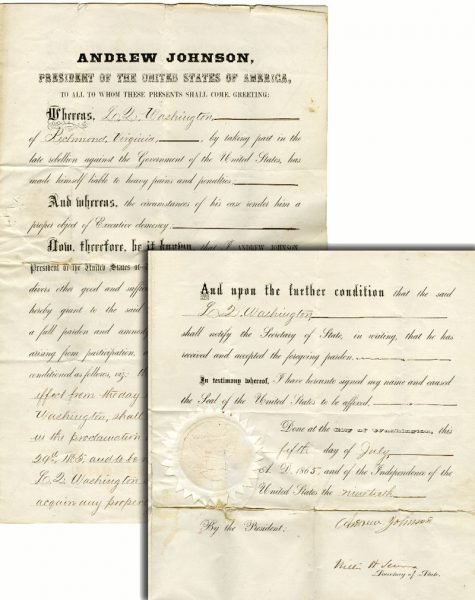 ANDREW JOHNSON,
PRESIDENT OF THE UNITED STATES OF AMERICA,
TO ALL TO WHOM THESE PRESENTS SHALL COME, GREETING:
Whereas, L. Q. Washington
of Richmond, Virginia, by taking part in the
late rebellion against the Government of the United States, has
made himself liable to heavy pains and penalties.
And whereas, the circumstances of his case render him a
proper object of Executive clemency.
Now, therefore, be it known, that I, ANDREW JOHNSON
President of the United States of
divers other good and suffi
hereby grant to the said
a full pardon and amnesty
arising from participation,
conditioned as follows, viz:
effect from the day
Washington, shall
in the proclamation
29th 1865, and to be
L. Q. Washington
acquire any proper
And upon the further condition that the said
L. Q. Washington
shall notify the Secretary of State, in writing, that he has
received and accepted the foregoing pardon.
In testimony whereof, I have hereunto signed my name and caused
the Seal of the United States to be affixed.
Done at the City of Washington, this
fifth day of July
A. D. 1865, and of the Independence of the
United States the ninetieth
By the President:
Andrew Johnson
Secretary of State.